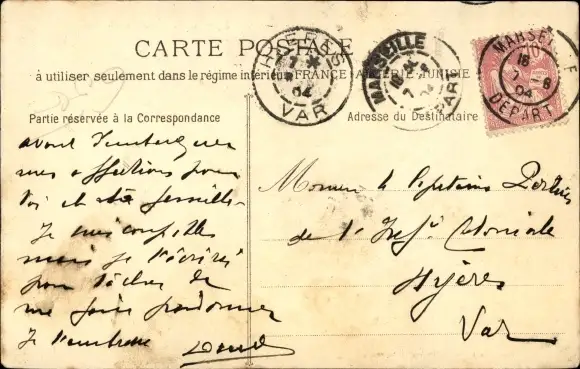 CARTE POSTALE
à utiliser seulement dans le régime intérieur FRANCE - ALGÉRIE - TUNISIE
HYÈRES
04
VAR
MARSEILLE
7 04
DÉPART
MARSEILLE
18
7 - 8
04
DÉPART
10
Partie réservée à la Correspondance
avant d'embarquer
mes affections pour
toi et ta famille.
Je suis
mais je t'écrirai
pour tâcher de
me faire pardonner
Je t'embrasse
Adresse du Destinataire
le Capitaine
de l'Infie Coloniale
Hyères
Var